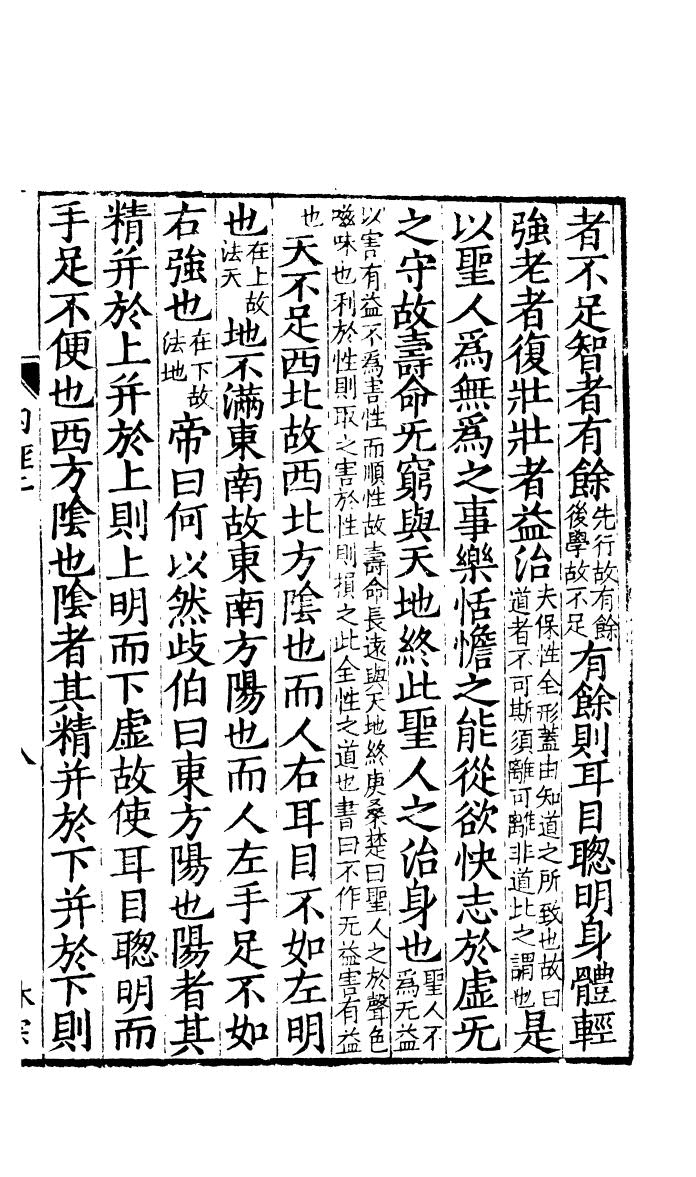 者不足智者有餘先行故有餘後學故不足有餘則耳目聦明身體輕
強老者復壯壯者益治夫保性全形蓋由知道之所致也故曰道者不可斯須離可離非道此之謂也是
以聖人爲無爲之事樂恬憺之能從欲快志於虛无
之守故壽命无窮與天地終此聖人之治身也聖人不爲无益
以害有益不爲害性而順性故壽命長遠與天地終庚桑楚曰聖人之於聲色
嗞味也利於性則取之害於性則損之此全性之道也書曰不作无益害有益
也天不足西北故西北方陰也而人右耳目不如左明
也在上故法天地不滿東南故東南方陽也而人左手足不如
右強也在下故法地帝曰何以然歧伯曰東方陽也陽者其
精并於上并於上則上明而下虛故使耳目聦明而
手足不便也西方陰也陰者其精并於下并於下則
八